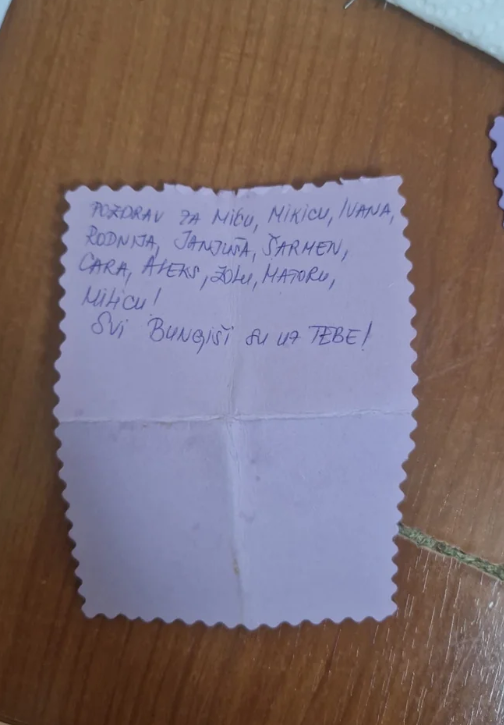 POZDRAV ZA MIĆU, MIKICU, IVANA,
RODNIJA, JANJUŠA, ŠARMEN,
CARA, ALEKS, ZOLU, MATORU,
MILICU!
SVI BUNGIŠI SU UZ TEBE!